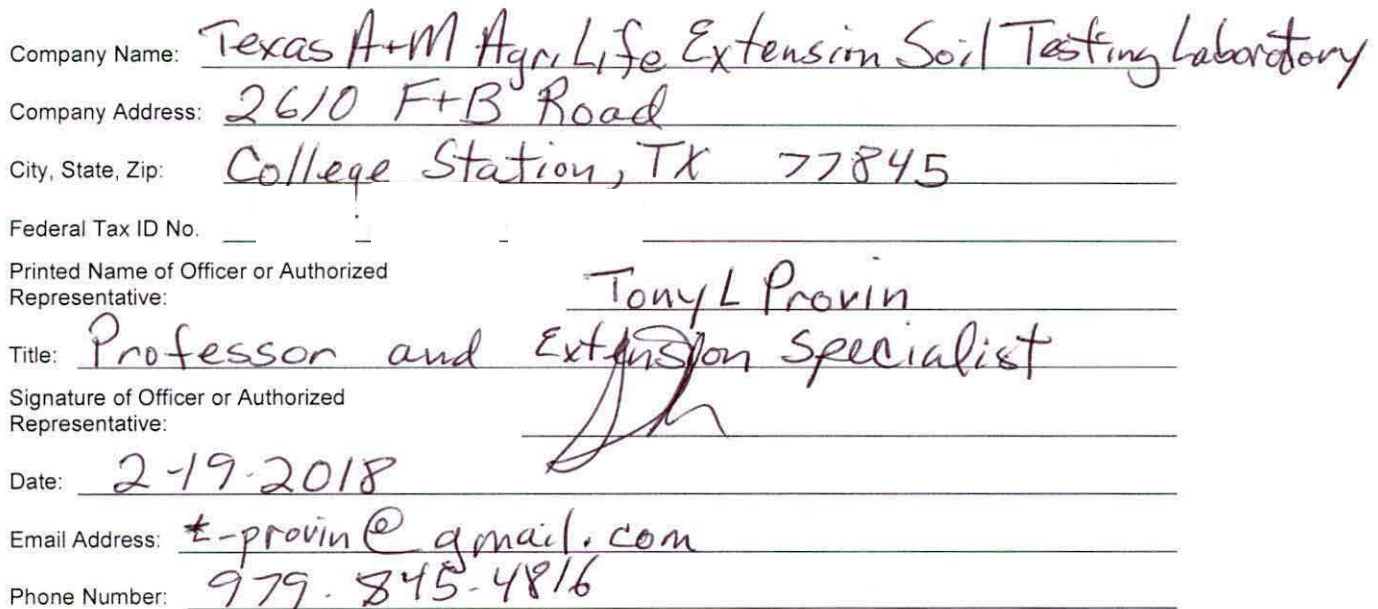 Company Name: Texas A+M AgriLife Extension Soil Testing Laboratory
Company Address: 2610 F+B Road
City, State, Zip: College Station, TX 77845
Federal Tax ID No.
Printed Name of Officer or Authorized
Representative: Tony L Provin
Title: Professor and Extension Specialist
Signature of Officer or Authorized
Representative:
Date: 2-19-2018
Email Address: t-provin@gmail.com
Phone Number: 979-845-4816